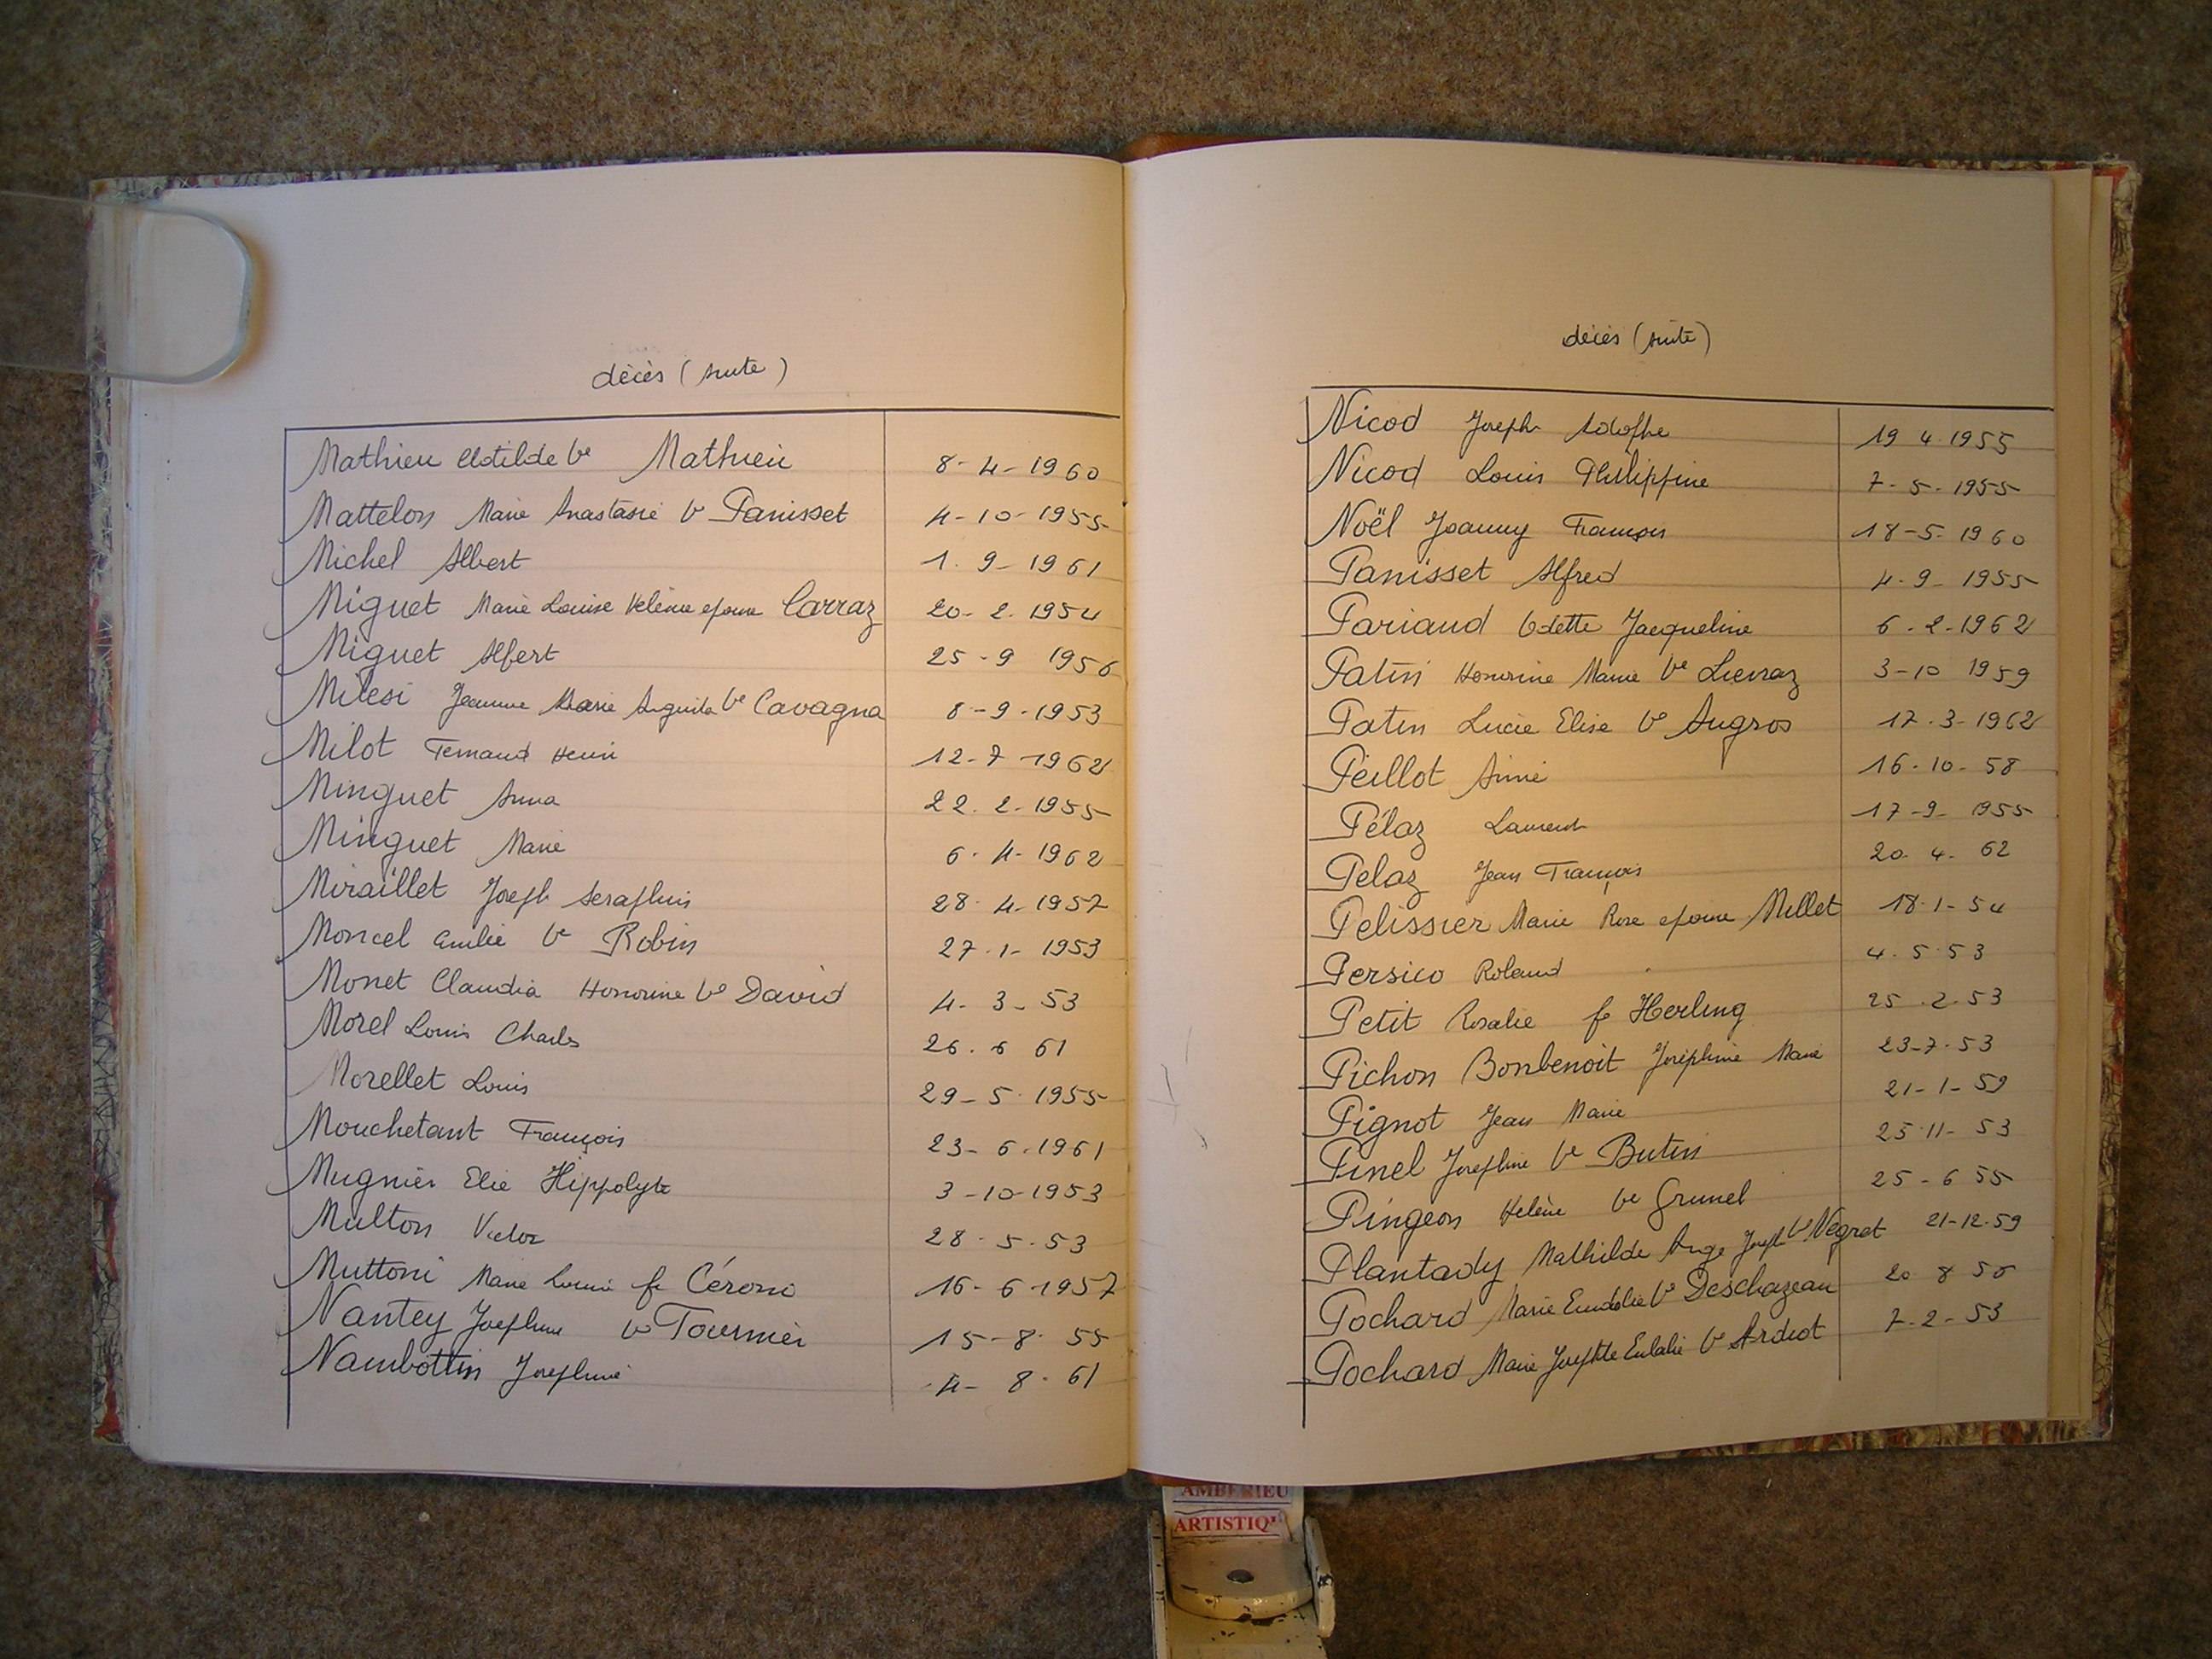 décès (suite)
Mathieu Clotilde Ve Mathieu 8-4-1960
Mattelon Marie Anastasie Ve Panisset 4-10-1955
Michel Albert 1.9-1961
Miguet Marie Louise Hélène epouse Carraz 20-2.1954
Miguet Albert 25-9 1956
Milesi Jeanne Marie Ve Cavagna 8-9-1953
Milot Fernand Henri 12-7-1962
Minguet Anna 22.2-1955
Minguet Marie 6-4-1962
Miraillet Joseph Seraphin 28-4-1957
Moncel Emilie Ve Robin 27-1-1953
Monet Claudia Honorine Ve David 4-3-53
Morel Louis Charles 26.6 61
Morellet Louis 29-5-1955
Mouchetant François 23-6-1961
Mugnier Elie Hippolyte 3-10-1953
Multon Victor 28-5-53
Muttoni Marie Louise fe Cérono 16-6-1957
Nantey Josephine Ve Tournier 15-8-55
Nambottin Josephine 4-8-61
décès (suite)
Nicod Joseph Adolphe 19 4.1955
Nicod Louis Philippine 7-5-1955
Noël Joanny François 18-5-1960
Panisset Alfred 4-9-1955
Pariaud Odette Jacqueline 6-2-1962
Patin Honorine Marie Ve Lievraz 3-10 1959
Patin Lucie Elise Ve Augros 17.3-1962
Péillot Aimé 16-10-58
Pélaz Laurent 17-9-1955
Pelaz Jean François 20.4.62
Pelissier Marie Rose epouse Millet 18-1-54
Persico Roland 4.5.53
Petit Rosalie fe Herling 25.2.53
Pichon Bonbenoit Joséphine Marie 23-7-53
Pignot Jean Marie 21-1-59
Pinel Josephine Ve Butin 25-11-53
Pingeon Hélène Ve Grumel 25-6 55
Plantady Mathilde Ange Joseph Ve Negret 21-12-59
Pochard Marie Ve Deschazeau 20 8
Pochard Marie Eulalie Ve Ardiot 7-2-53
AMBERIEU
ARTISTIQ